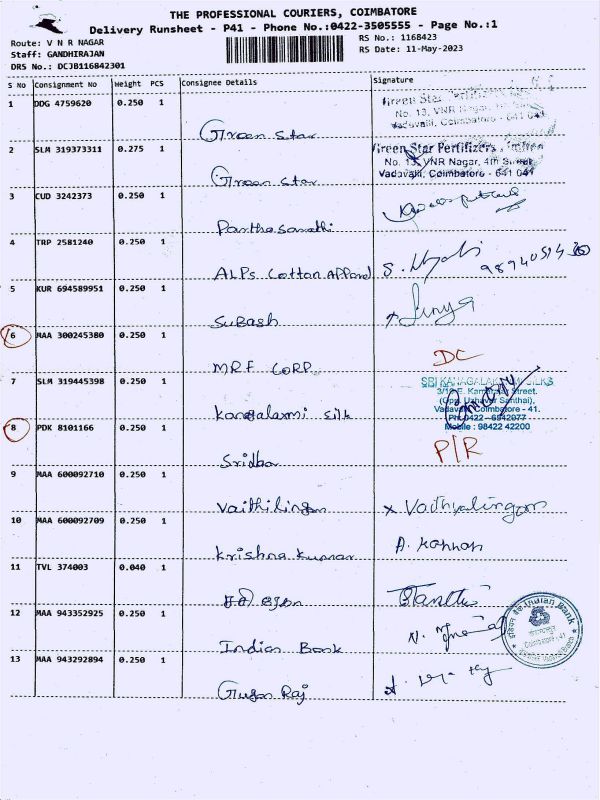 THE PROFESSIONAL COURIERS, COIMBATORE
Delivery Runsheet - P41 - Phone No.:0422-3505555 - Page No.:1
Route: V N R NAGAR
RS No.: 1168423
Staff: GANDHIRAJAN
RS Date: 11-May-2023
DRS No.: DCJB116842301
S No Consignment No Weight PCS Consignee Details Signature
1 DDG 4759620 0.250 1
Green Star Fertilizers
No. 13, VNR Nagar,
Vadavalli, Coimbatore - 641 041
Green star
2 SLM 319373311 0.275 1
Green Star Fertilizers Limited
No. 13, VNR Nagar, 4th Street
Vadavalli, Coimbatore - 641 041
Green star
3 CUD 3242373 0.250 1
Parthasarathi
4 TRP 2581240 0.250 1
ALPs Cotton Afford
5 KUR 694589951 0.250 1
Subash
Surya
6 MAA 300245380 0.250 1
MRF CORP
DC
7 SLM 319445398 0.250 1
SRI KANAGALAKSHMI SILKS
(Opp. Uzhavar Santhai),
Vadavalli, Coimbatore - 41.
Ph: 0422 - 6942077
Mobile : 98422 42200
Kanagalaxmi silk
8 PDK 8101166 0.250 1
Sridhar
P/R
9 MAA 600092710 0.250 1
Vaithilingam
x Vaithyalingam
10 MAA 600092709 0.250 1
Krishna Kumar
A. Kannan
11 TVL 374003 0.040 1
12 MAA 943352925 0.250 1
Indian Bank
Indian Bank
13 MAA 943292894 0.250 1
Gugan Raj